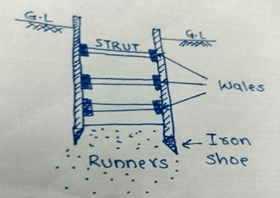 G.L
G.L
STRUT
Wales
Iron
Shoe
Runners